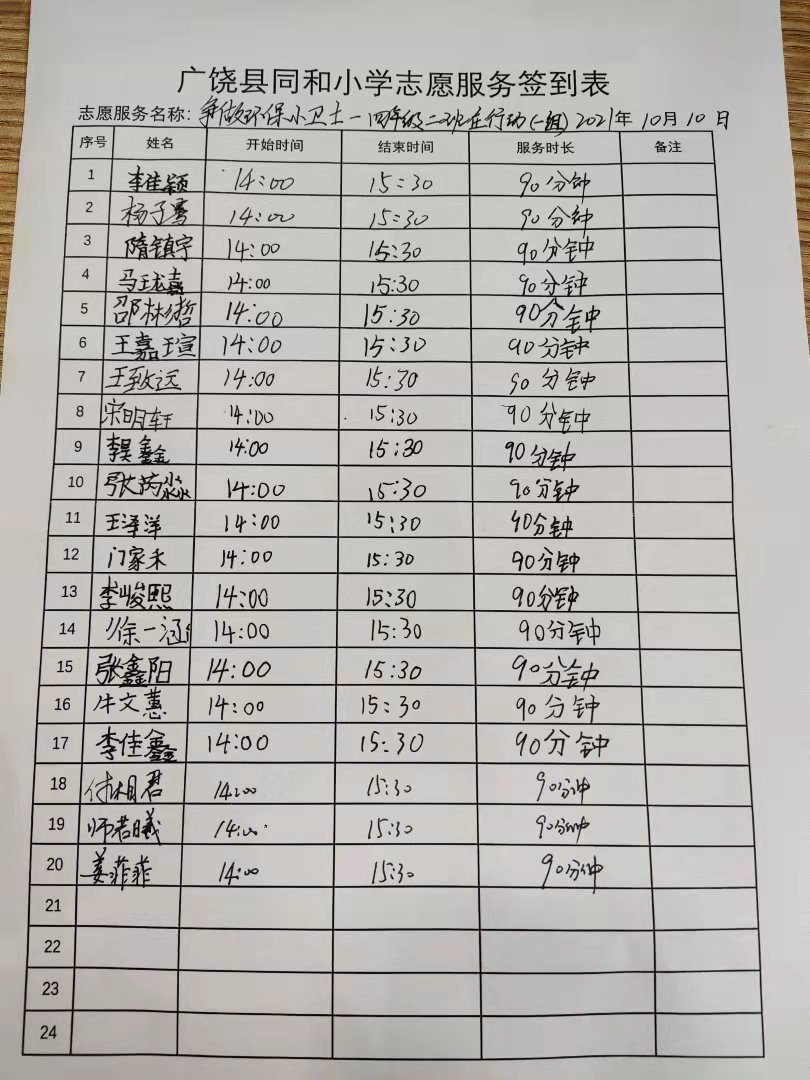 广饶县同和小学志愿服务签到表
志愿服务名称：争做环保小卫士-四年级二班在行动(一组) 2021年10月10日
序号 姓名 开始时间 结束时间 服务时长 备注
1 李佳颖 14:00 15:30 90分钟
2 杨子骞 14:00 15:30 90分钟
3 隋镇宇 14:00 15:30 90分钟
4 马珑嘉 14:00 15:30 90分钟
5 邵林哲 14:00 15:30 90分钟
6 王嘉瑄 14:00 15:30 90分钟
7 王致远 14:00 15:30 90分钟
8 宋明轩 14:00 15:30 90分钟
9 李昊鑫 14:00 15:30 90分钟
10 张芮淼 14:00 15:30 90分钟
11 王泽洋 14:00 15:30 90分钟
12 门家禾 14:00 15:30 90分钟
13 李峻熙 14:00 15:30 90分钟
14 徐一涵 14:00 15:30 90分钟
15 张鑫阳 14:00 15:30 90分钟
16 牛文蕙 14:00 15:30 90分钟
17 李佳鑫 14:00 15:30 90分钟
18 付相君 14:00 15:30 90分钟
19 师若曦 14:00 15:30 90分钟
20 姜菲菲 14:00 15:30 90分钟
21
22
23
24